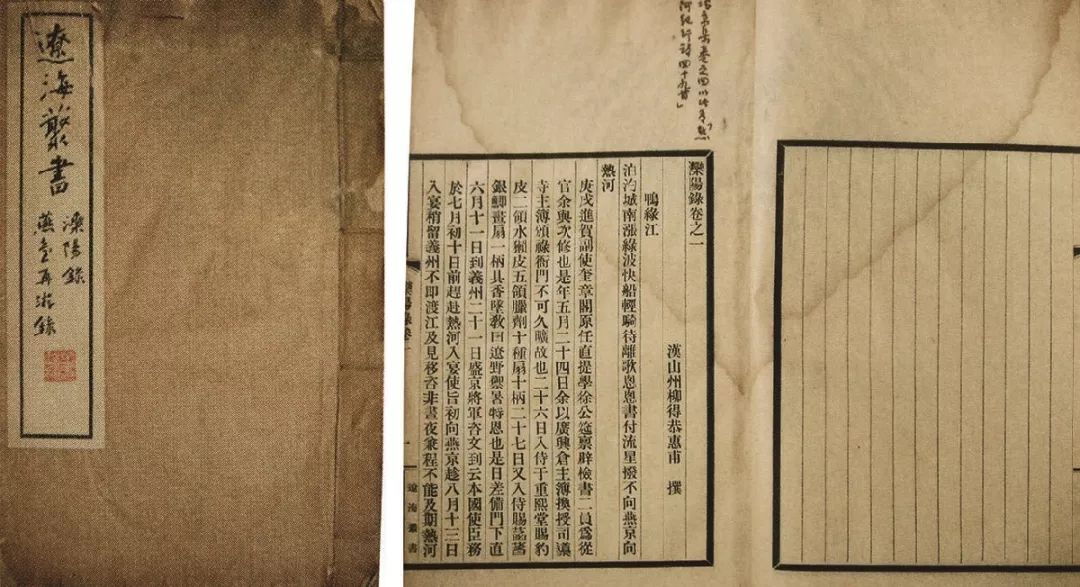 遼海叢書
灤陽錄
燕臺再游錄
集卷之四以
河紀行詩四十九首」
灤陽錄卷之一
漢山州柳得恭惠甫 撰
鴨綠江
泊汋城南漲綠波快船輕騎待離歌恩恩書付流星撥不向燕京向
熱河
庚戌進賀副使奎章閣原任直提學徐公稟辟檢書二員爲從
官余與次修也是年五月二十四日余以廣興倉主簿換授司䆃
寺主簿頒祿衙門不可久曠故也二十六日入侍于重熙堂賜豹
皮二領水獺皮五領臘劑十種扇十柄二十七日又入侍賜
銀鯽畫扇一柄具香墜敎曰遼野禦暑特恩也是日差備門下直
六月十一日到義州二十一日盛京將軍咨文到云本國使臣務
於七月初十日前趕赴熱河入宴使旨初向燕京趁八月十三日
入宴稍留義州不即渡江及見移咨非晝夜兼程不能及期熱河
灤陽錄卷一
一
遼海叢書